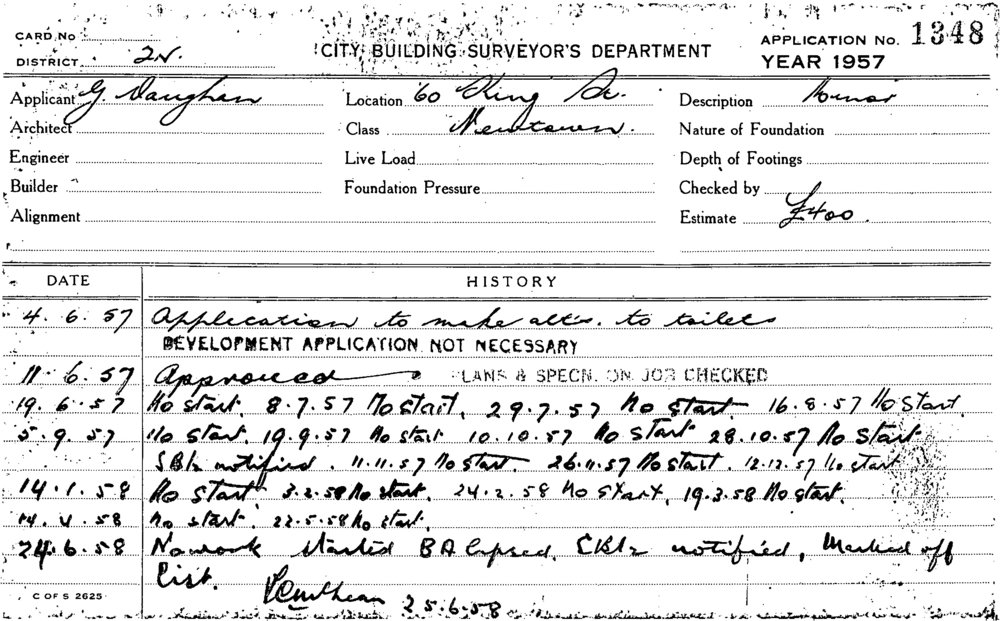 CARD. No
CITY BUILDING SURVEYOR'S DEPARTMENT
APPLICATION No. 1348
DISTRICT. 2N.
YEAR 1957
Applicant G. Vaughan Location 60 King St. Description Minor
Architect Class Newtown. Nature of Foundation
Engineer Live Load Depth of Footings
Builder Foundation Pressure Checked by
Alignment Estimate £400.
DATE HISTORY
4. 6. 57 Application to make alt's. to toilets
DEVELOPMENT APPLICATION NOT NECESSARY
11. 6. 57 Approved PLANS & SPECN. ON JOB CHECKED
19. 6. 57 No start. 8.7.57 No start. 29.7.57 No start 16.8.57 No start.
5. 9. 57 No start. 19.9.57 No start 10.10.57 No start 28.10.57 No start
notified. 11.11.57 No start. 26.11.57 No start. 12.12.57 No start
14. 1. 58 No start 3.2.58 No start. 24.2.58 No start, 19.3.58 No start.
14. 4. 58 No start. 22.5.58 No start.
24. 6. 58 No work started BA lapsed, notified, Marked off
List. 25.6.58
C OF S 2625